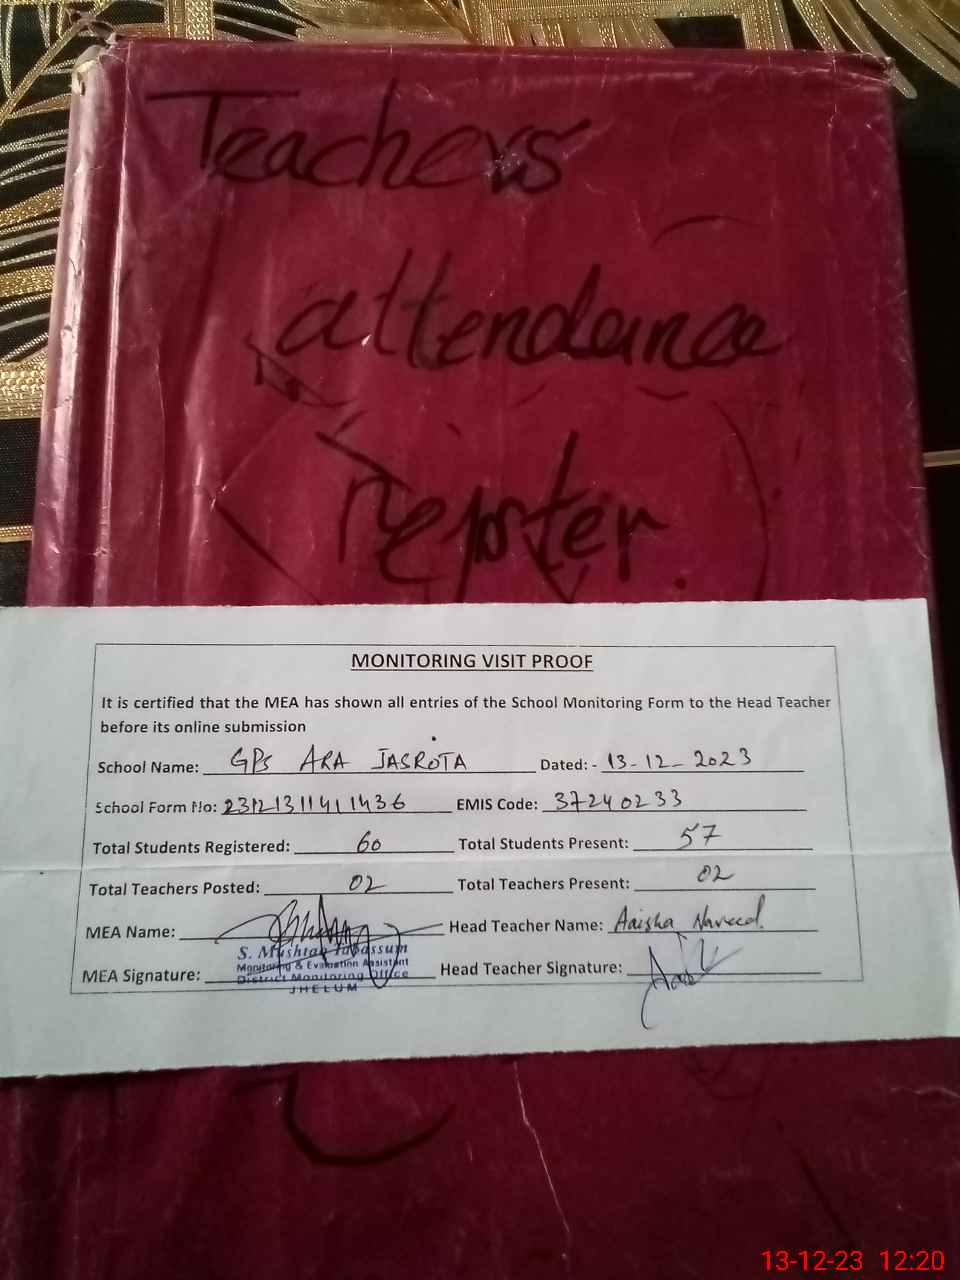 Teachers
attendance
register
MONITORING VISIT PROOF
It is certified that the MEA has shown all entries of the School Monitoring Form to the Head Teacher
before its online submission
School Name: GPS ARA JASROTA Dated: - 13-12-2023
School Form No: 231213114111436 EMIS Code: 37240233
Total Students Registered: 60 Total Students Present: 57
Total Teachers Posted: 02 Total Teachers Present: 02
MEA Name: Head Teacher Name: Aaisha Naveed.
S. Mushtaq Tabassum
Monitoring & Evaluation Assistant
MEA Signature: Head Teacher Signature:
District Monitoring Office
JHELUM
13-12-23 12:20